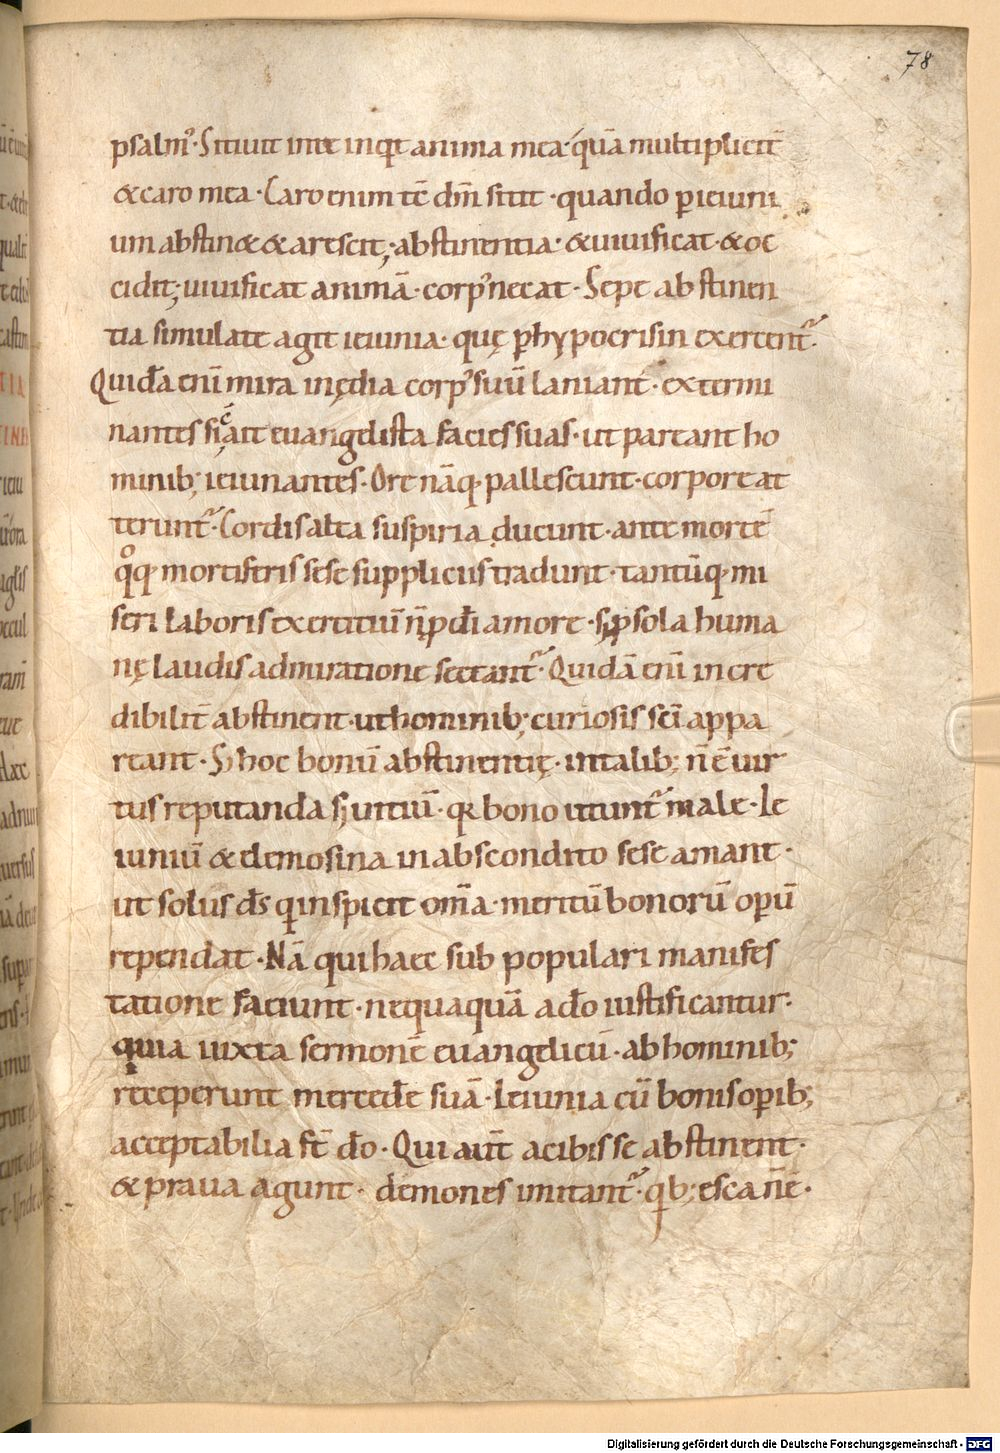 78
psalm᷒· Sitiuit in te inq̇t anima mea· quā multiplicit̄
& caro mea· Caro enim tē dm̄ sitit· quando ꝑ ieiuni
um abstin& & arescit; abstinentia· & uiuificat· & oc
cidit; uiuificat animā· corp᷒ necat· Sepe abstinen
tia simulate agit ieiunia· quę ꝑ hypocrisin exercent᷒·
Quidā enī mira inędia corp᷒ suū laniant· extermi
nantes sic ait euangelista facies suas· ut pareant ho
minib; ieiunantes· Ore nāq· pallescunt· corpore at
terunt᷒· Cordis alta suspiria ducunt· ante mortē
qͦq· mortiferis sese suppliciis tradunt· tantūq· mi
seri laboris exercitiū n̄ ꝓ dī amore· sꝫ ꝓ sola huma
nę laudis admiratione sectant᷒· Quidā enī incre
dibilit̄ abstinent· ut hominib; curiosis sc̄i appa
reant· Sꝫ hoc bonū abstinentię· in talib; n̄ ē uir
tus reputanda sꝫ uitiū· qꝛ bono utunt᷒ male· Ie
iuniū & elemosina in abscondito sese amant·
ut solus ds̄ qͥ inspicit om̄a· meritū bonorū oꝑū
rependat· Nā qui haec sub populari manifes
tatione faciunt· nequaquā a dō iustificantur·
quia iuxta sermonē euangelicū· ab hominib;
receperunt mercedē suā· Ieiunia cū bonis oꝑib;
acceptabilia st̄ dō· Qui aut̄ a cibis se abstinent·
& praua agunt· demones imitant᷒· qͥb; esca n̄ ē·
Digitalisierung gefördert durch die Deutsche Forschungsgemeinschaft - DFG